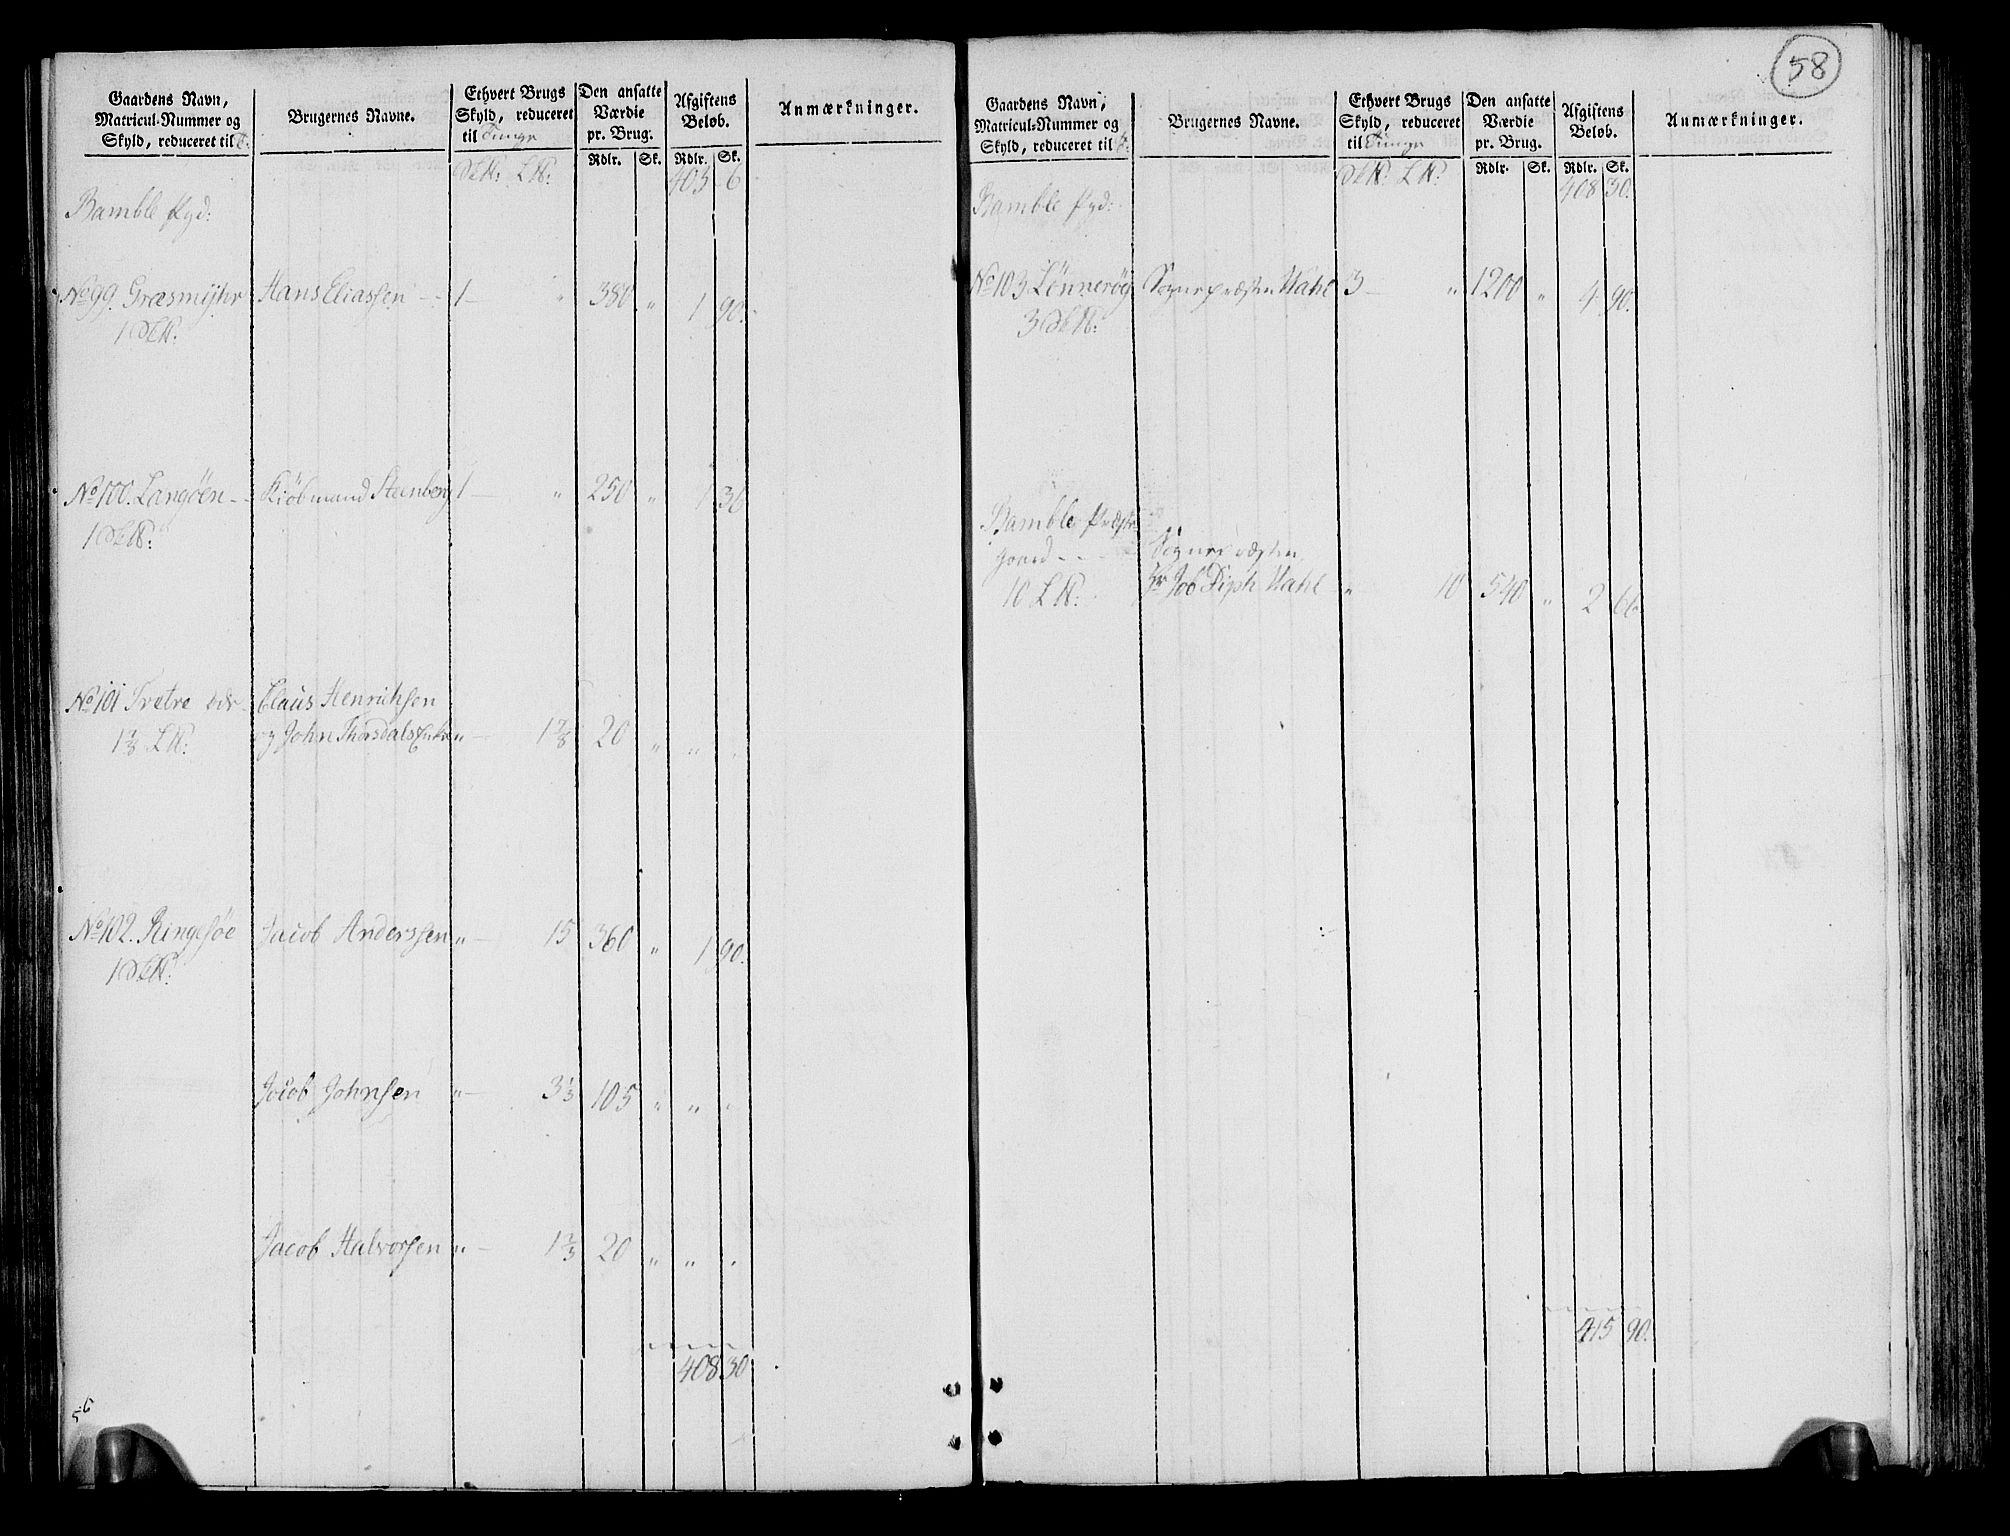 58
Gaardens Navn,
Matricul-Nummer og
Skyld, reduceret til T:
Brugernes Navne.
Ethvert Brugs
Skyld, reduceret
til Tunge
Den ansatte
Værdie
pr. Brug.
Afgiftens
Beløb.
Anmærkninger.
Rdlr. Sk. Rdlr. Sk.
403 6
Bamble
No 99. Græsmyhr Hans Eliassen 1 — " 380 " 1 90.
No 100. Langöen Kiöbmand Steenberg 1 — " 250 " 1 36
No 101 Tretre Claus Henrichsen
1 7/8 og John Thorsdals Enke " — 1 7/8 20 " " "
No 102. Ringesöe Jacob Anderssen " — 15 360 " 1 90.
Jacob Johnsen " — 3 1/3 105 " " "
Jacob Halvorsen " — 1 2/3 20 " " "
408 30
56
Gaardens Navn,
Matricul-Nummer og
Skyld, reduceret til T:
Brugernes Navne.
Ethvert Brugs
Skyld, reduceret
til Tunge
Den ansatte
Værdie
pr. Brug.
Afgiftens
Beløb.
Anmærkninger.
Rdlr. Sk. Rdlr. Sk.
408 30.
Bamble
No 103. Lönnerög Sognepræsten Wahl 3 — " 1200 " 4 90.
Bamble Præste
gaard Sognepræsten
10 Hr Job Wahl " 10 540 " 2 66
415 90.